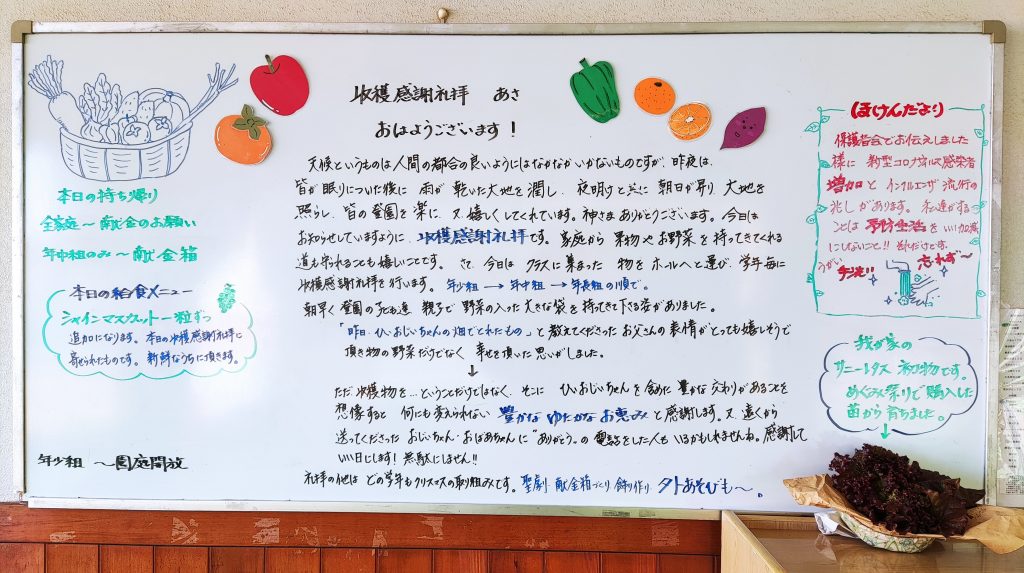 収穫感謝礼拝 あさ
おはようございます！
天候というものは人間の都合の良いようにはなかなかいかないものですが、昨夜は、
皆が眠りについた後に 雨が 乾いた大地を潤し、夜明けと共に 朝日が昇り 大地を
照らし、皆の登園を楽に、又 嬉しくしてくれています。神さま ありがとうございます。今日は
お知らせしていますように、収穫感謝礼拝です。家庭から 果物や お野菜を 持ってきてくれる
道も守られることも嬉しいことです。さて、今日は クラスに集まった 物を ホールへと運び、学年毎に
収穫感謝礼拝を行います。年少組 → 年中組 → 年長組の順で。
朝早く 登園の 親子で 野菜の入った大きな袋を 持ってきて下さる姿がありました。
「昨日、ひいおじいちゃんの畑でとれたもの」と教えてくださった お父さんの表情がとっても嬉しそうで
頂き物の野菜だけでなく 幸せを頂いた思いがしました。
↓
ただ、収穫物を…ということだけではなく、そこに ひいおじいちゃんを含めた 豊かな交わりがあることを
想像すると 何にも変えられない 豊かな ゆたかな お恵み と感謝します。又 遠くから
送ってくださった おじいちゃん・おばあちゃんに "ありがとう"の 電話をした人も いるかもしれませんね。感謝して
いい日にします！ 無駄にしません!!
礼拝の他は どの学年もクリスマスの取り組みです。聖劇 献金箱づくり 飾り作り 外あそびも〜。
本日の持ち帰り
全家庭〜献金のお願い
年中組のみ〜献金箱
本日の給食メニュー
シャインマスカット一粒ずつ
追加になります。本日の収穫感謝礼拝に
寄せられたものです。新鮮なうちに頂きます。
年少組 〜園庭開放
ほけんだより
保護者会でお伝えしました
様に 新型コロナウイルス感染者
増加と インフルエンザ 流行の
兆しがあります。私達ができる
ことは 予防生活を いい加減
にしないこと!! それだけです。
うがい
手洗い
忘れず〜
我が家の
サニーレタス 初物です。
めぐみ祭りで購入した
苗から 育ちました。